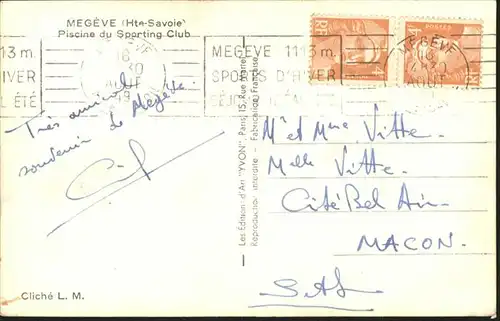 MEGÈVE (Hte-Savoie)
Piscine du Sporting Club
MEGÈVE 1113 m.
SPORTS D'HIVER
MEGÈVE
POSTES
RF
13 m.
HIVER
L ÉTÉ
Très amical
souvenir de Megève.
Les Editions d'Art "YVON", Paris, 15, Rue Martel
Reproduction interdite - Fabrication Française
Mr et Mme Vitte
Melle Vitte.
Cité Bel Air
MACON.
S. et L.
Cliché L. M.